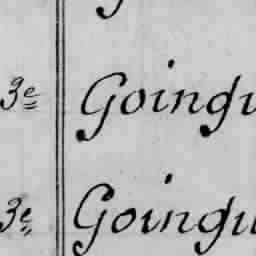 3e Goingu
3e Goingu